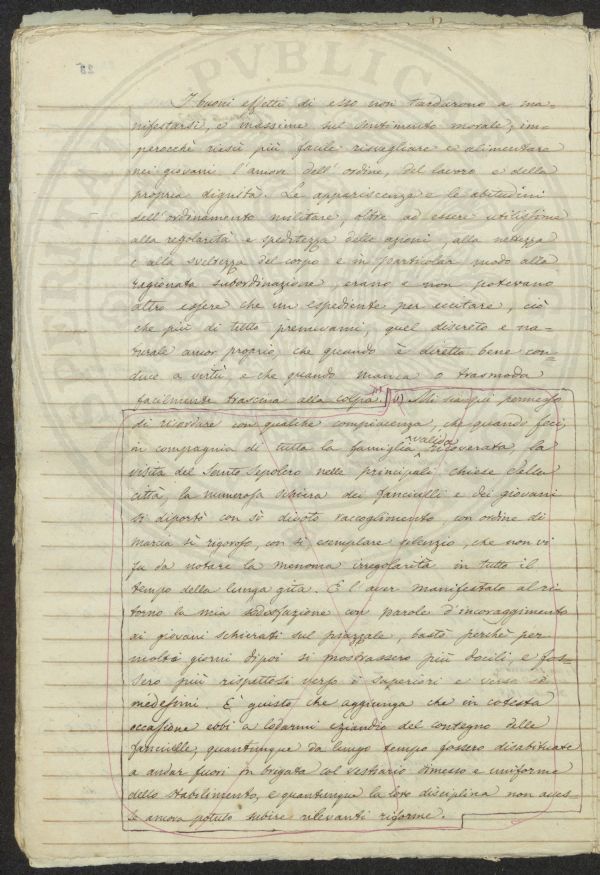 I buoni effetti di esso non tardarono a ma-
nifestarsi, e massime sul sentimento morale; im-
perocchè riescì più facile risvegliare e alimentare
nei giovani l'amore dell'ordine, del lavoro e della
propria dignità. Le appariscenze e le abitudini
dell'ordinamento militare, oltre ad essere utilissime
alla regolarità e speditezza delle azioni, alla nettezza
e alla sveltezza del corpo e in particolar modo alla
ragionata subordinazione, erano e non potevano
altro essere che un espediente per eccitare, ciò
che più di tutto premevami, quel discreto e na-
turale amor proprio, che quando è diretto bene con-
duce a virtù, e che quando manca o trasmoda
facilmente trascina alla colpa. (1) Mi sia quì permesso
di ricordare con qualche compiacenza, che quando feci,
valida
in compagnia di tutta la famiglia ricoverata, la
visita del Santo Sepolcro nelle principali chiese della
città, la numerosa schiera dei fanciulli e dei giovani
si diportò con sì divoto raccoglimento, con ordine di
marcia sì rigoroso, con sì esemplare silenzio, che non vi
fu da notare la menoma irregolarità in tutto il
tempo della lunga gita. E l'aver manifestato al ri-
torno la mia sodisfazione con parole d'incoraggimento
ai giovani schierati sul piazzale, bastò perchè per
molti giorni dipoi si mostrassero più docili, e fos-
sero più rispettosi verso i superiori e verso sè
medesimi. È giusto che aggiunga che in cotesta
occasione ebbi a lodarmi eziandio del contegno delle
fanciulle, quantunque da lungo tempo fossero disabituate
a andar fuori in brigata col vestiario dimesso e uniforme
dello Stabilimento, e quantunque la loro disciplina non aves-
se ancora potuto subire rilevanti riforme.